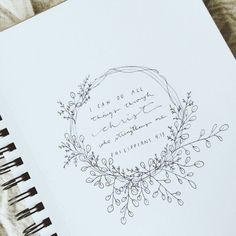 I CAN DO ALL
things through
Christ
who strengthens me
PHILIPPIANS 4:13